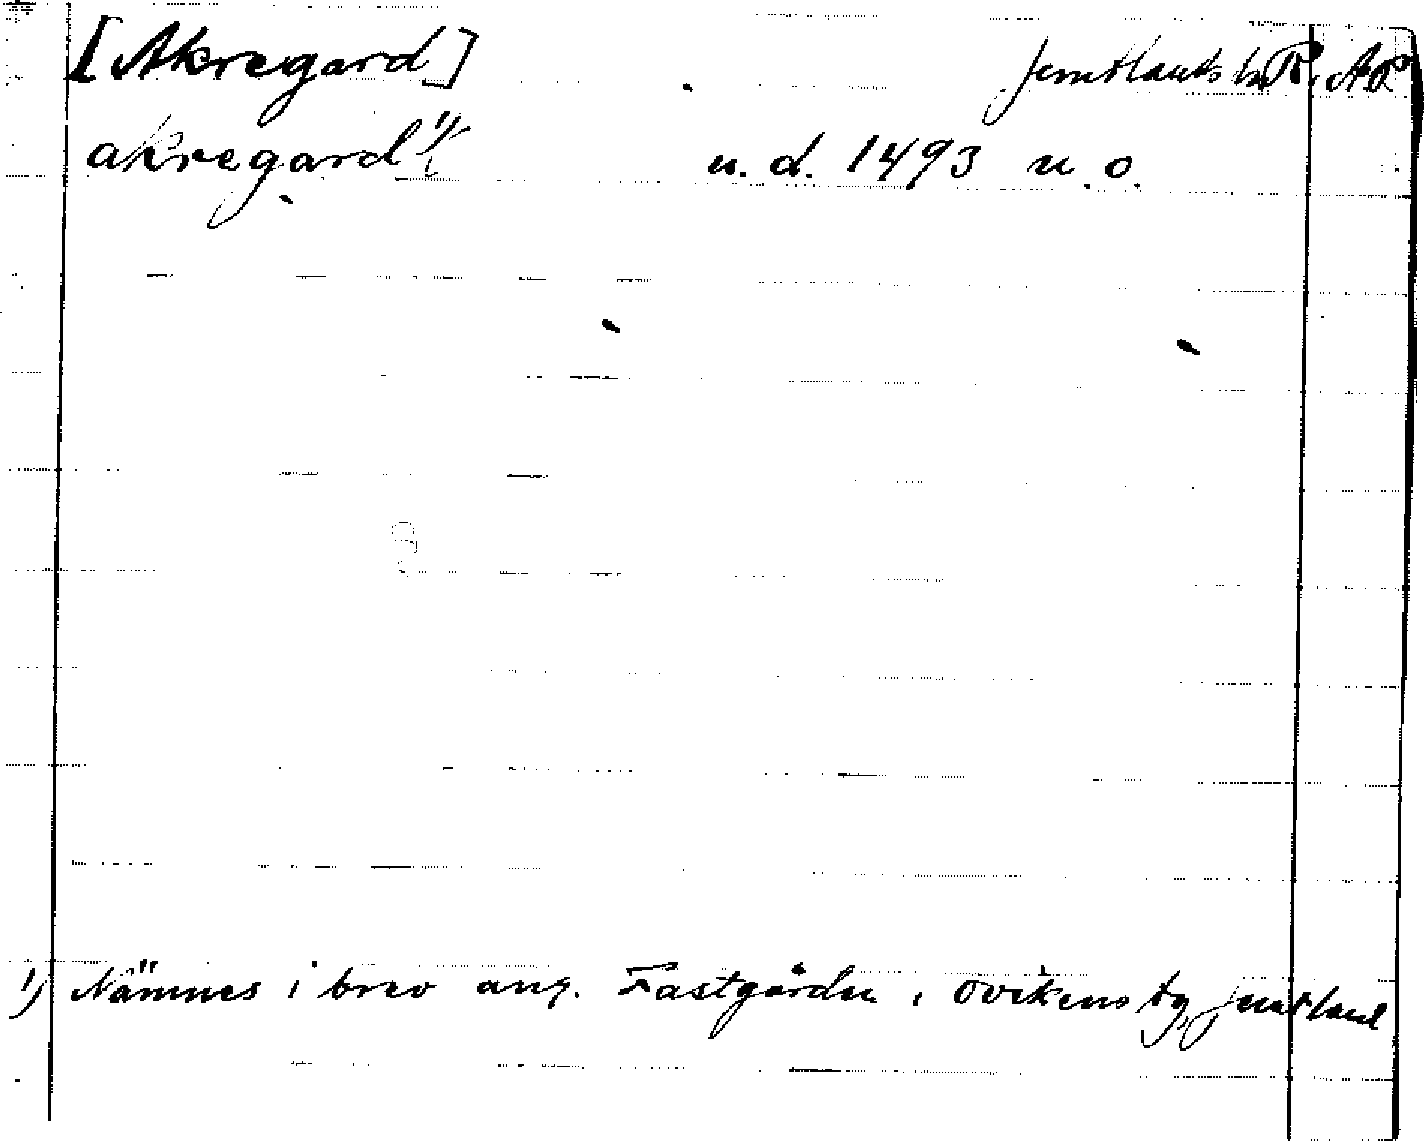 [Akregard] Jemtlands l. R. AP
akregard 1) u. d. 1493 u. o.
1) Nämnes i brev ang. Fastgården i Ovikens by, Jemtland